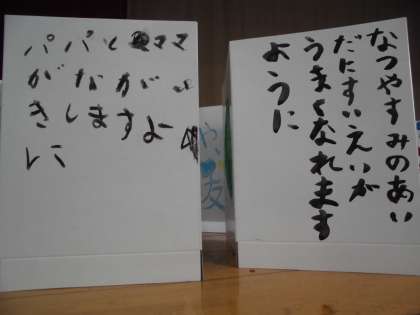 パパとママ
がながい
きしますよー
に
なつやすみのあい
だにすいえいが
うまくなれます
ように
や
友